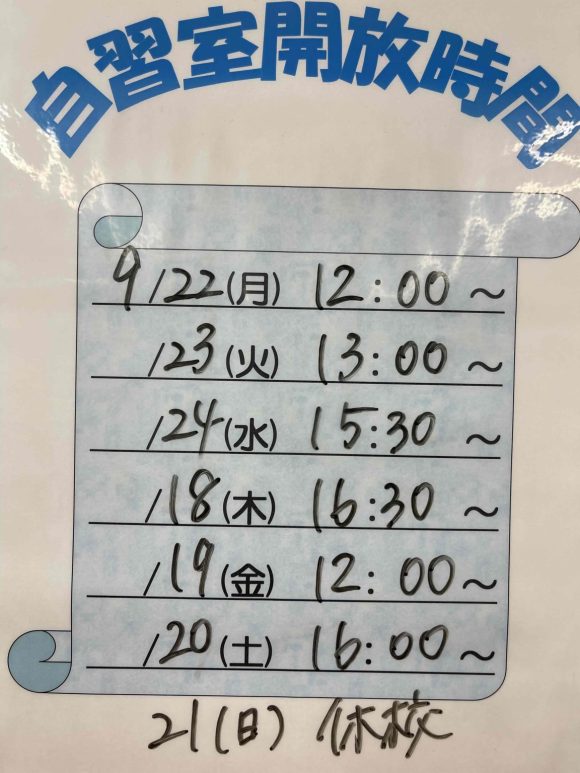 自習室開放時間
9/22(月) 12:00~
/23(火) 13:00~
/24(水) 15:30~
/18(木) 16:30~
/19(金) 12:00~
/20(土) 16:00~
21(日) 休校